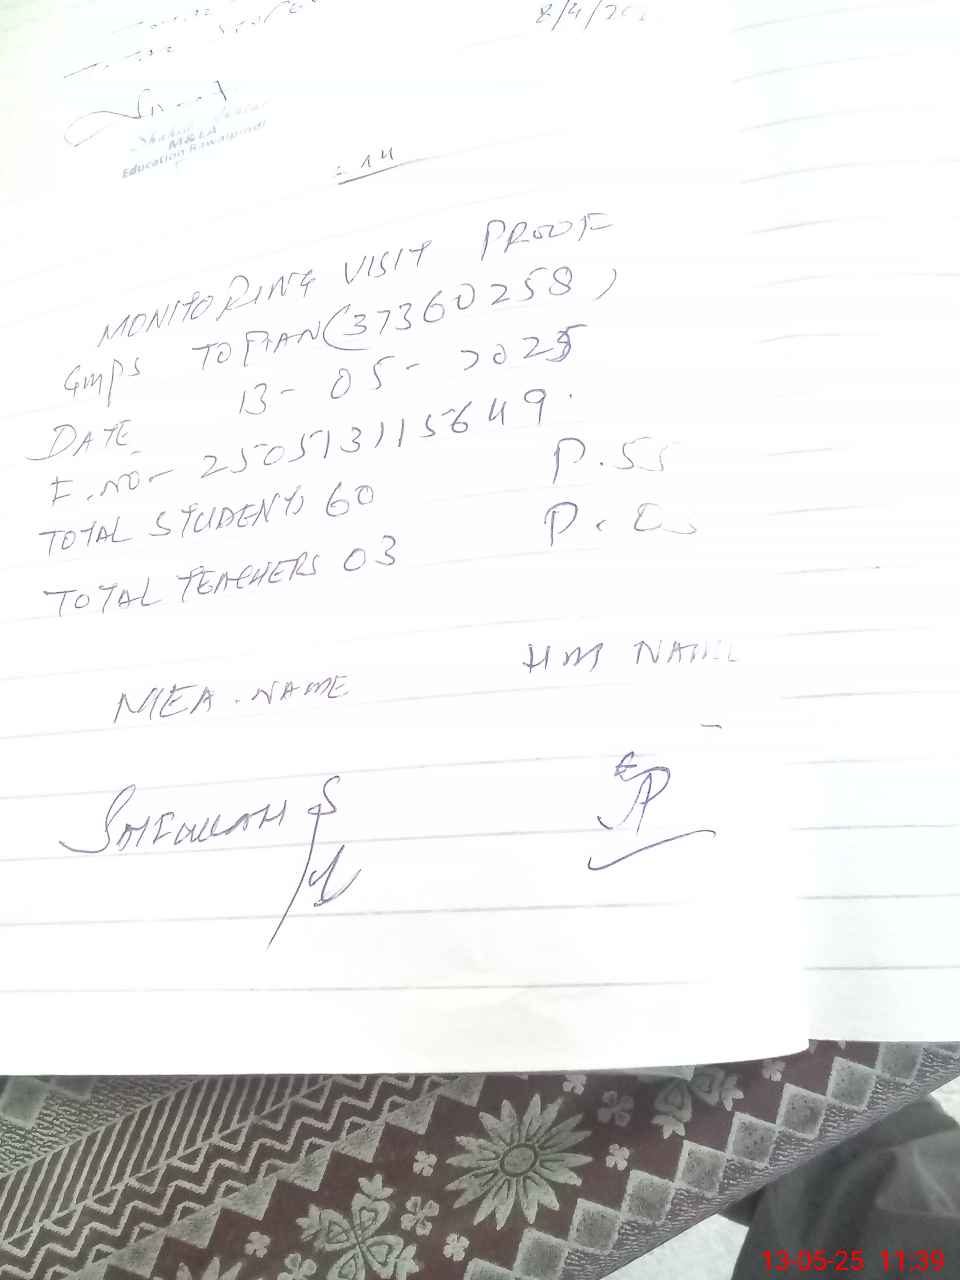 8/4/202
M&EA
Education Rawalpindi
14
MONITORING VISIT PROOF
GMPS TOPIAN (37360258)
DATE 13-05-2025
F.NO- 250513115649.
TOTAL STUDENTS 60 P.55
TOTAL TEACHERS 03 P.
MEA.NAME HM NAME
SAFIULLAH S
13-05-25 11:39